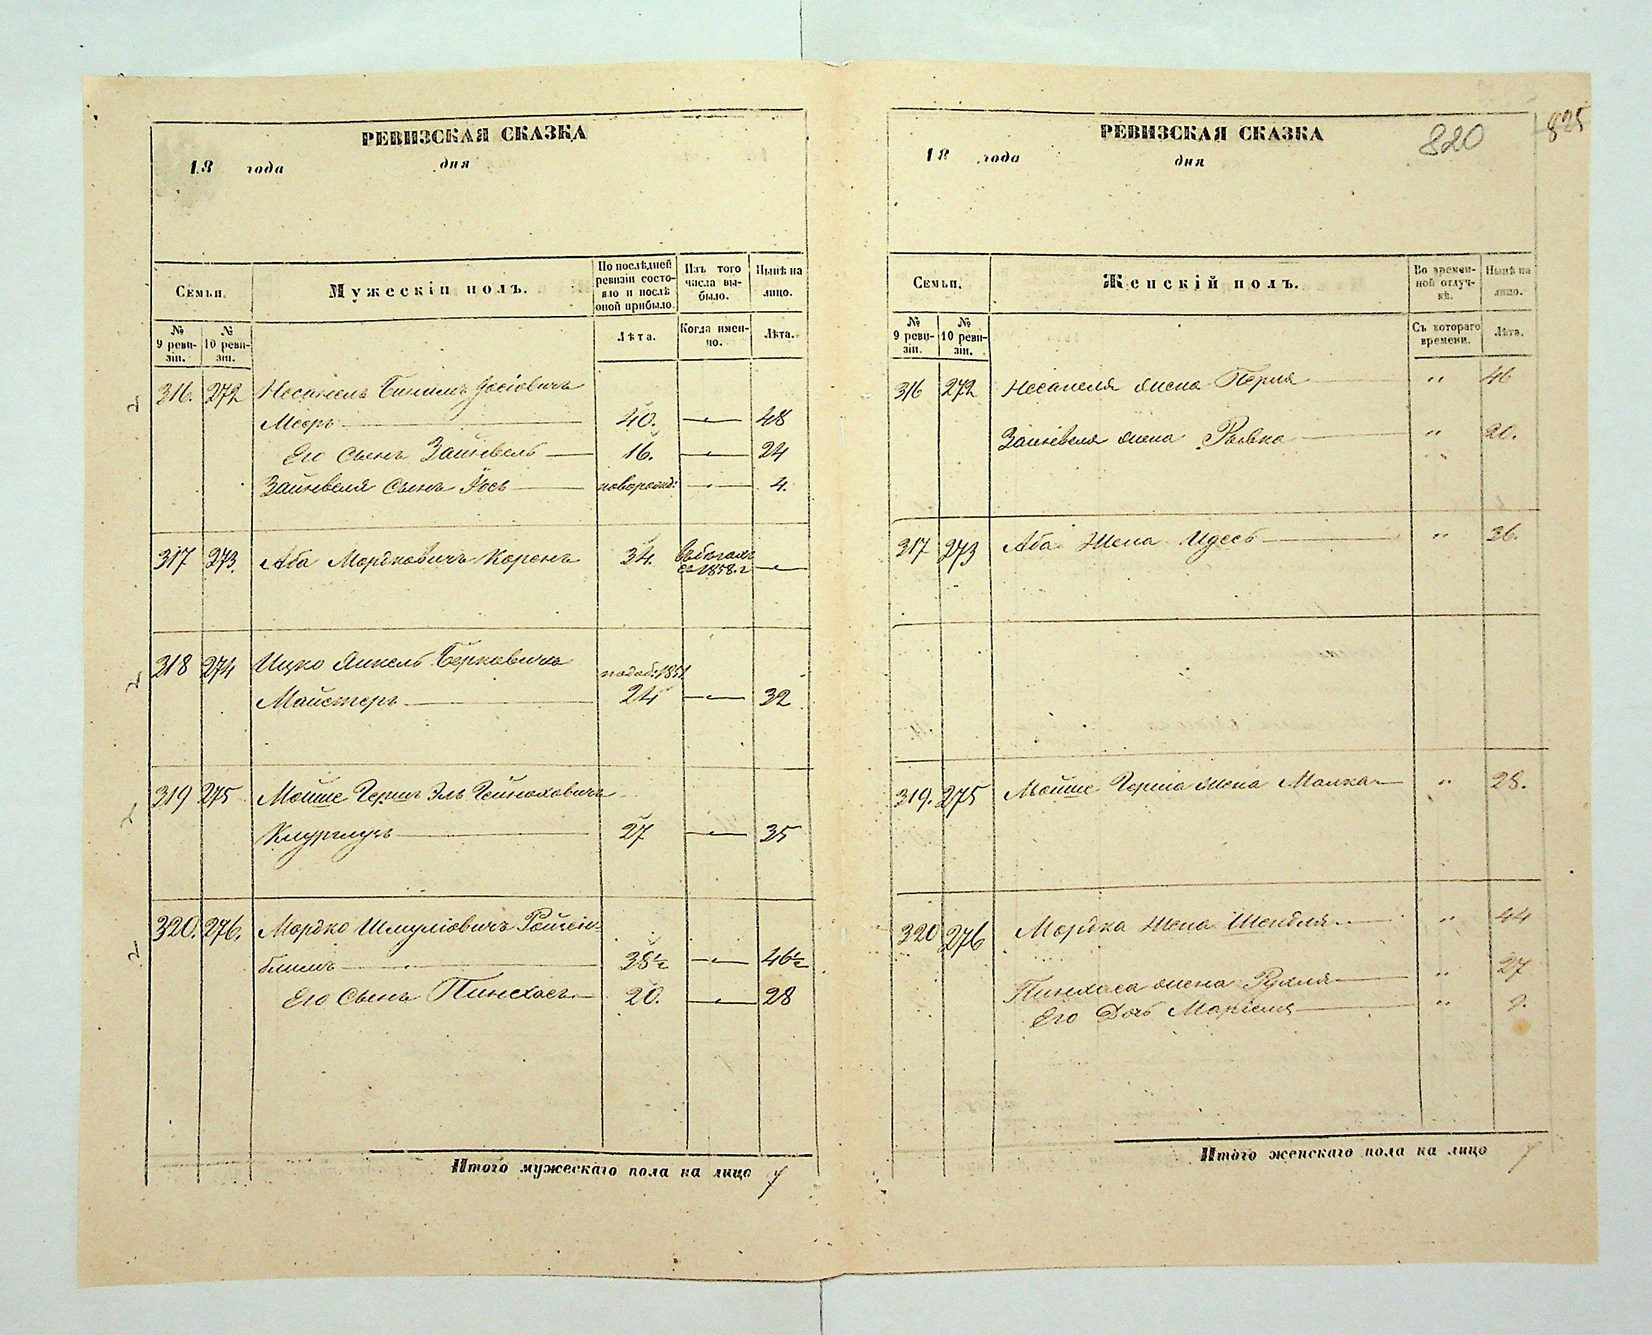 820
825
РЕВИЗСКАЯ СКАЗКА
18 года дня
Семьи.
Мужескій полъ.
По послѣдней ревизіи состояло и послѣ оной прибыло.
Изъ того числа выбыло.
Нынѣ на лицо.
№ 9 ревизіи.
№ 10 ревизіи.
Лѣта.
Когда именно.
Лѣта.
316. 272 Несанель Бинимъ Iосiовичъ
Мееръ 40. — 48
Его Сынъ Зайнвель 16. — 24
Зайнвеля Сынъ Iось новорожд: — 4.
317 273. Аба Мордковичъ Коренъ 34. въ бегахъ съ 1858. г —
318 274 Ицко Янкель Берковичъ
Майстеръ 24 — 32
319 275 Мойше Герш Эль Гейноховичъ
27 — 35
320. 276. Мордко Шмулiовичъ Ройзен-
блитъ 38½ — 46½
Его Сынъ Пинсхасъ 20. — 28
Итого мужескаго пола на лицо 7
РЕВИЗСКАЯ СКАЗКА
18 года дня
Семьи.
Женскій полъ.
Во временной отлучкѣ.
Нынѣ на лицо.
№ 9 ревизіи.
№ 10 ревизіи.
Съ котораго времени.
Лѣта.
316 272 Несанеля жена Перля " 46
Зайнвеля жена Ривка " 20.
317 273 Аба жена Идесь " 36.
319. 275 Мойше Герша жена Малка " 28.
320 276 Мордка жена Шендля " 44
Пинхаса жена Рухля " 27
Его Дочь Марiемъ "
Итого женскаго пола на лицо 7